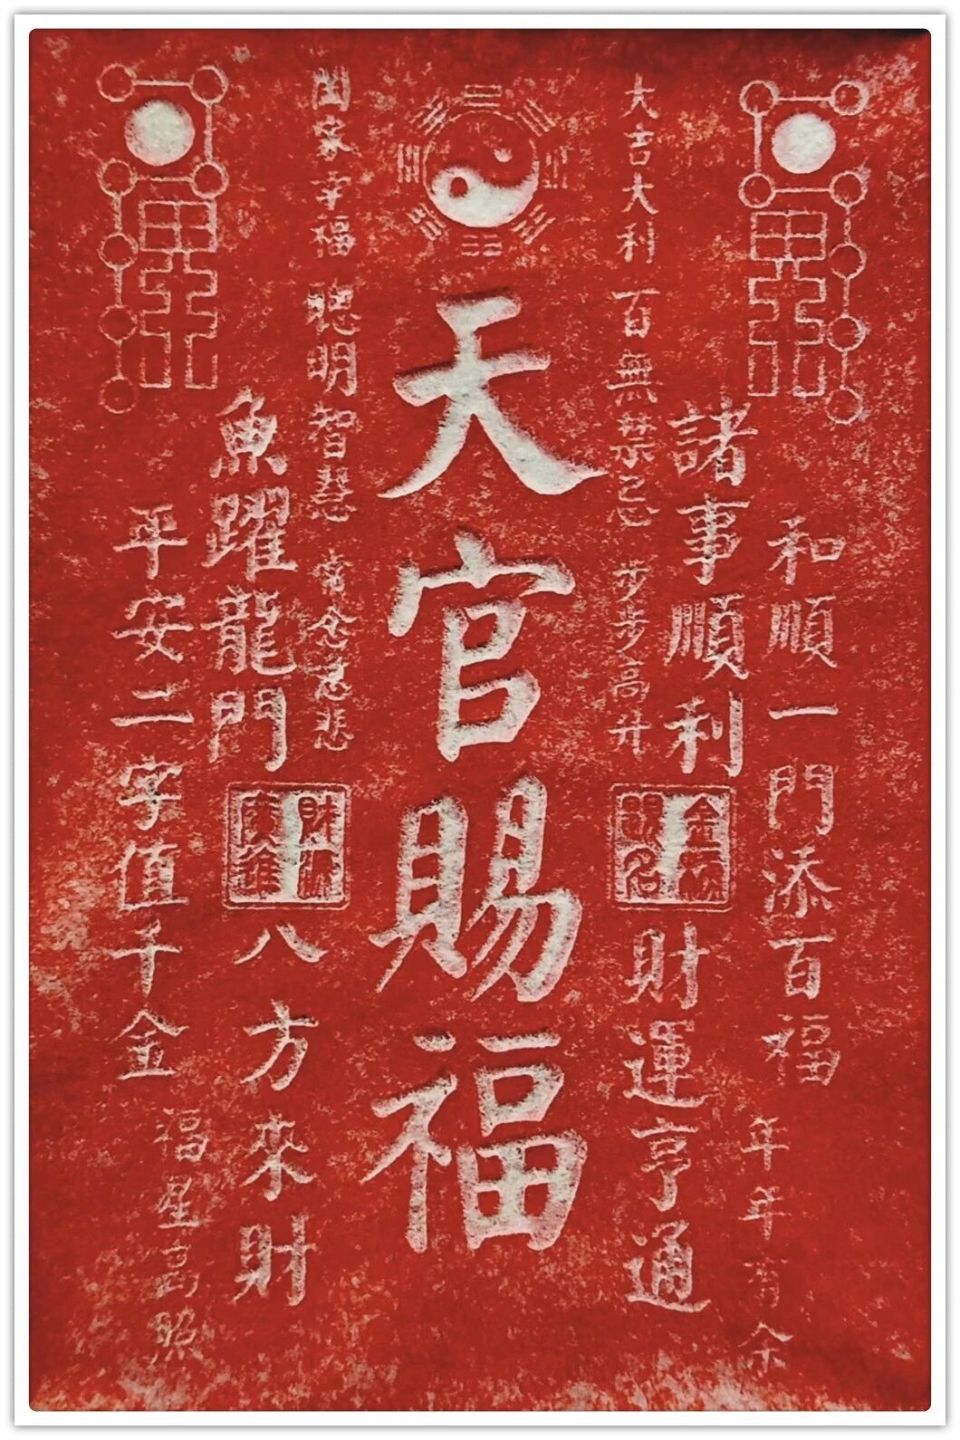 和順一門添百福
年年有余
諸事順利
財運亨通
大吉大利
百無禁忌
步步高升
天官賜福
家幸福
聰明智慧
常念慈悲
魚躍龍門
財源廣進
八方來財
平安二字值千金
福星高照